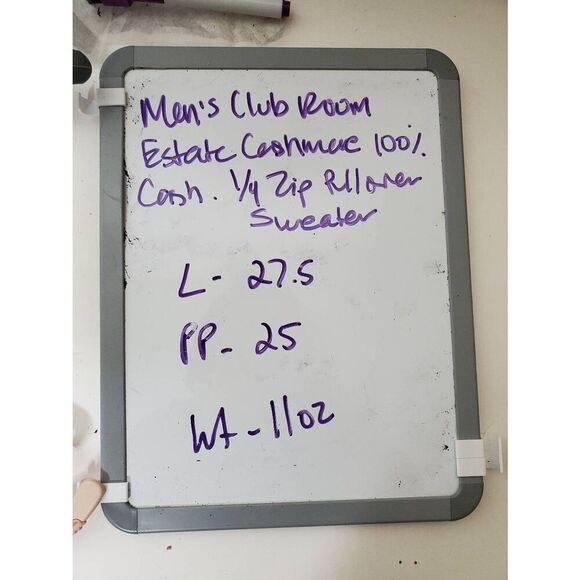 Men's Club Room
Estate Cashmere 100%
Cash. 1/4 Zip Pullover
Sweater
L- 27.5
PP- 25
Wt - 11oz